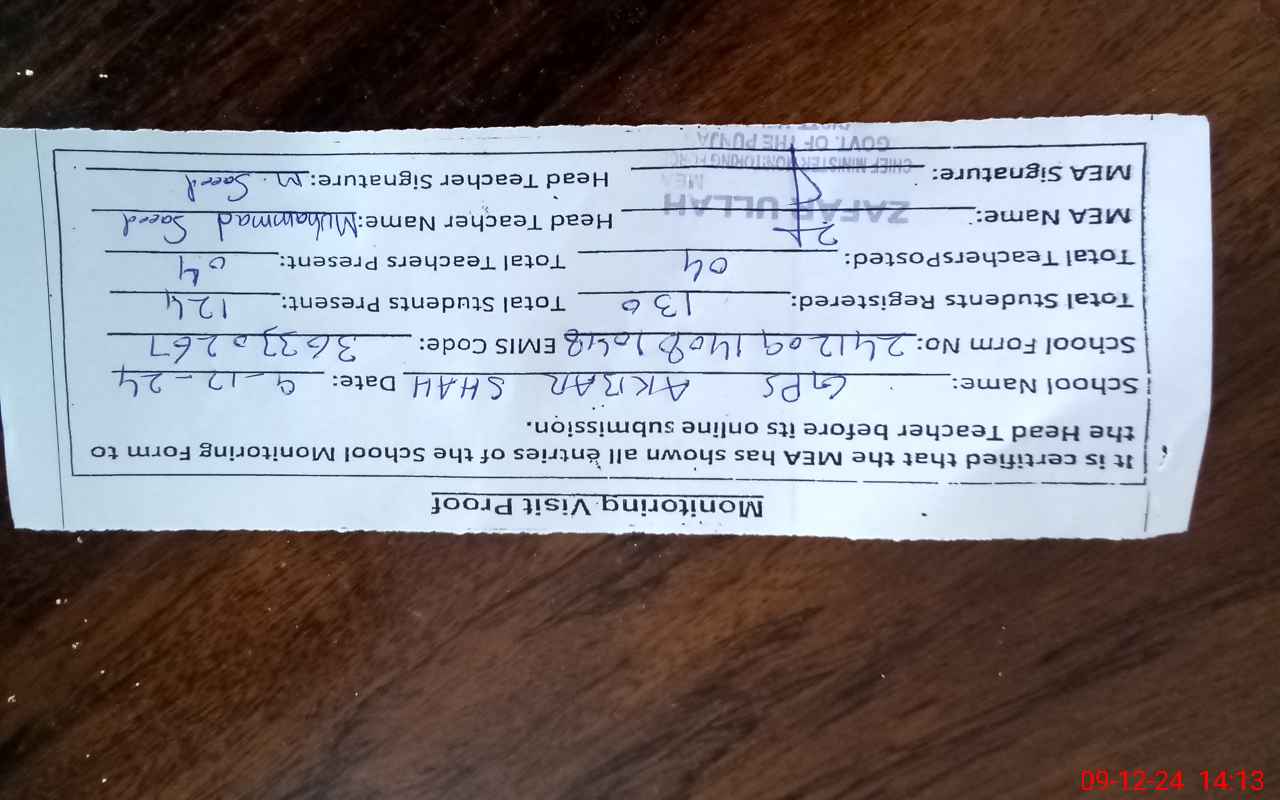 Monitoring Visit Proof
It is certified that the MEA has shown all entries of the School Monitoring Form to
the Head Teacher before its online submission.
School Name: GPS AKBAR SHAH Date: 9-12-24
School Form No: 24120914081048 EMIS Code: 36330267
Total Students Registered: 130 Total Students Present: 124
Total TeachersPosted: 04 Total Teachers Present: 04
MEA Name: Head Teacher Name: Muhammad Saeed
MEA Signature: Head Teacher Signature: M. Saeed
ZAFAR ULLAH
MEA
CHIEF MINISTER MONITORING FORC
GOVT. OF THE PUNJA
09-12-24 14:13